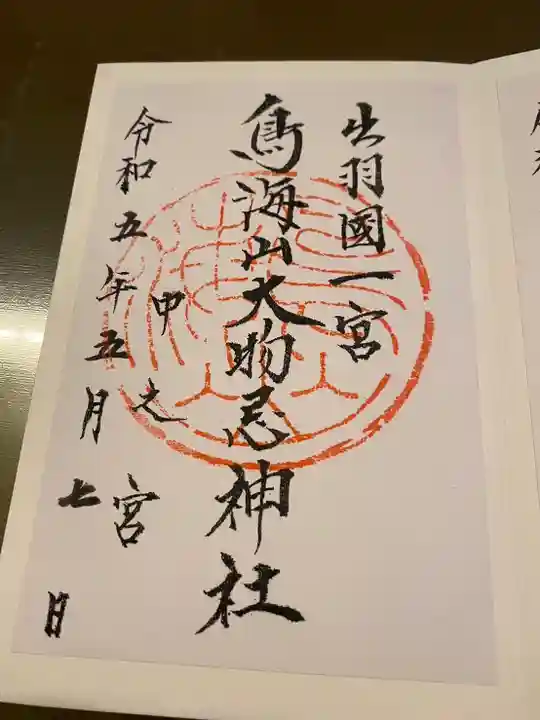 出羽國一宮
鳥海山大物忌神社
中之宮
令和五年五月七日